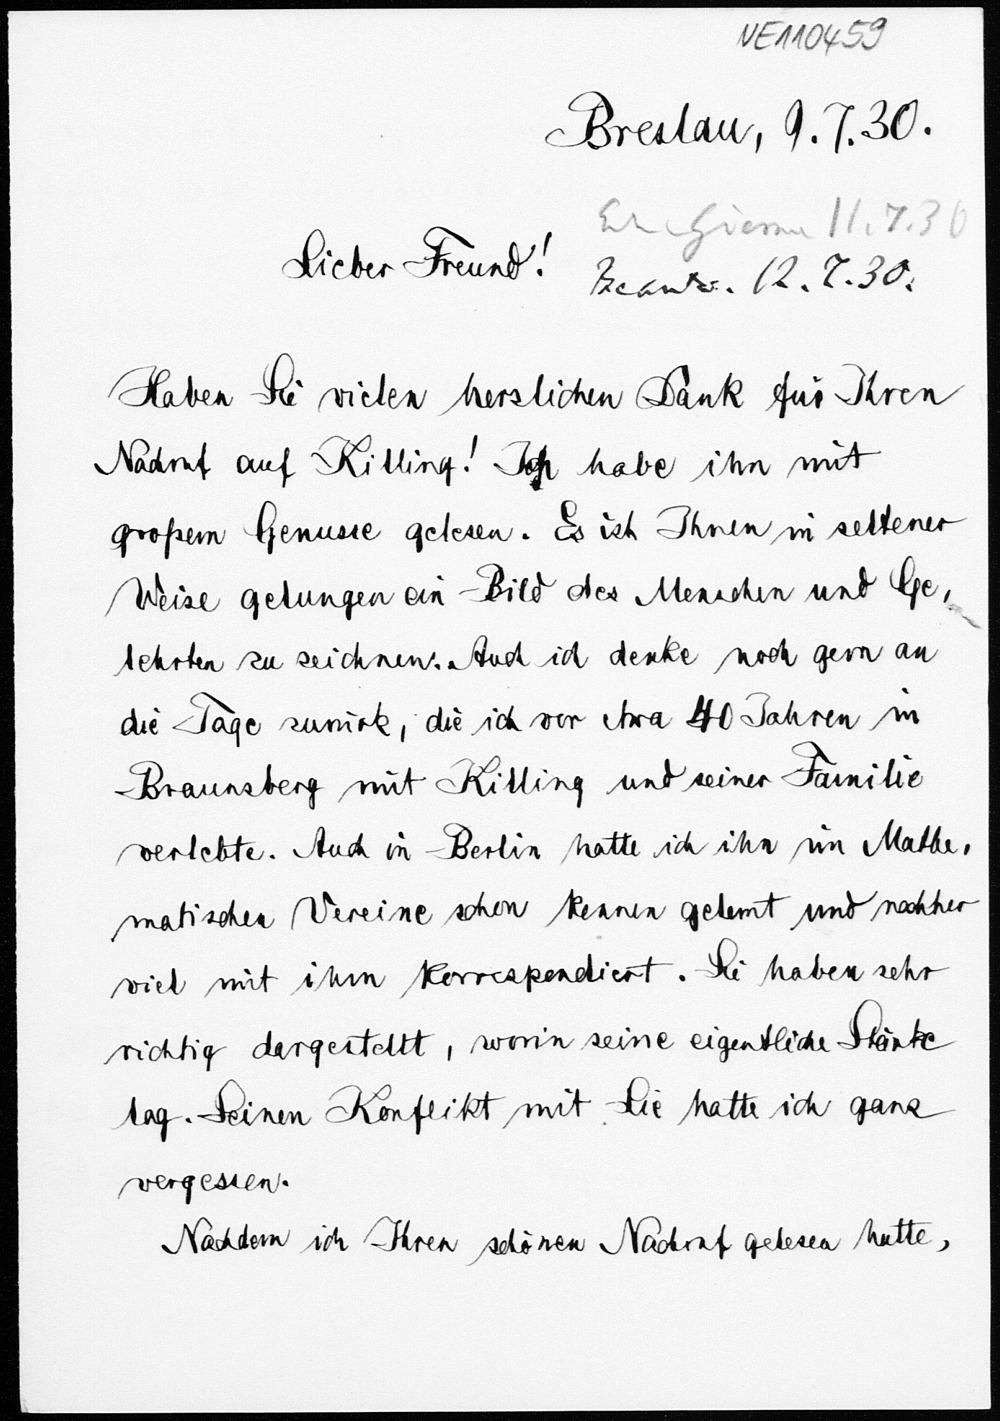 NE110459
Breslau, 9.7.30.
11.7.30
Lieber Freund!
Beantw. 12.7.30.
Haben Sie vielen herzlichen Dank für Ihren
Nachruf auf Killing! Ich habe ihn mit
großem Genusse gelesen. Es ist Ihnen in seltener
Weise gelungen ein Bild des Menschen und Ge,
lehrten zu zeichnen. Auch ich denke noch gern an
die Tage zurück, die ich vor etwa 40 Jahren in
Braunsberg mit Killing und seiner Familie
verlebte. Auch in Berlin hatte ich ihn im Mathe,
matischen Vereine schon kennen gelernt und nachher
viel mit ihm korrespondiert. Sie haben sehr
richtig dargestellt, worin seine eigentliche Stärke
lag. Seinen Konflikt mit Lie hatte ich ganz
vergessen.
Nachdem ich Ihren schönen Nachruf gelesen hatte,